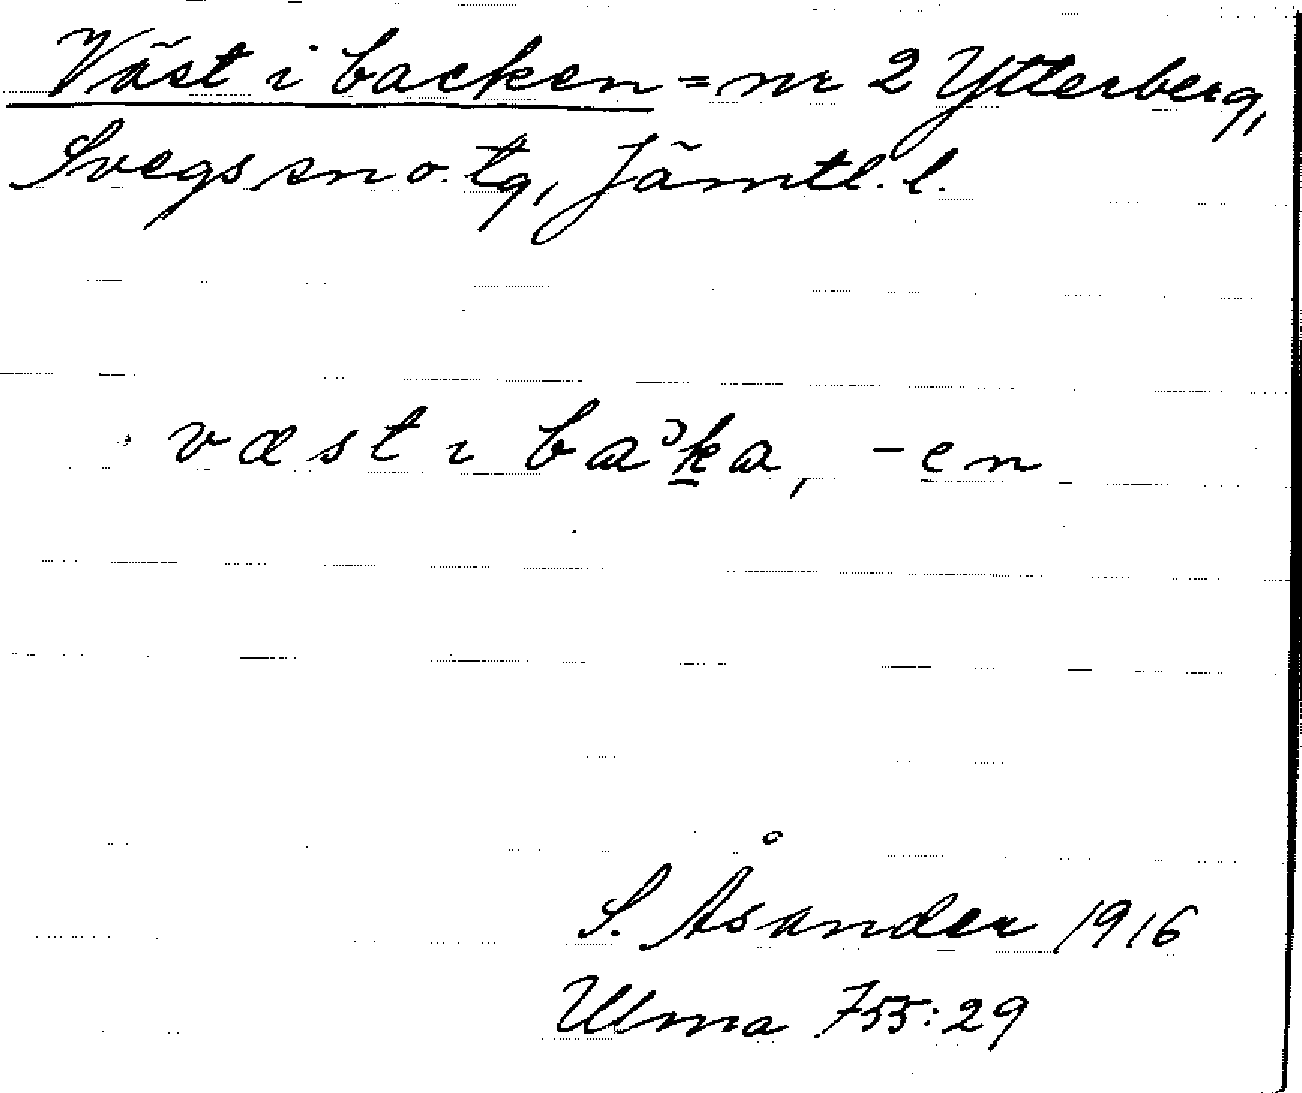 Väst i backen = nr 2 Ytterberg,
Svegs sn o. tg, Jämtl. l.
væst ı baʾk̲a, -e̲n
S. Åsander 1916
Ulma 755:29